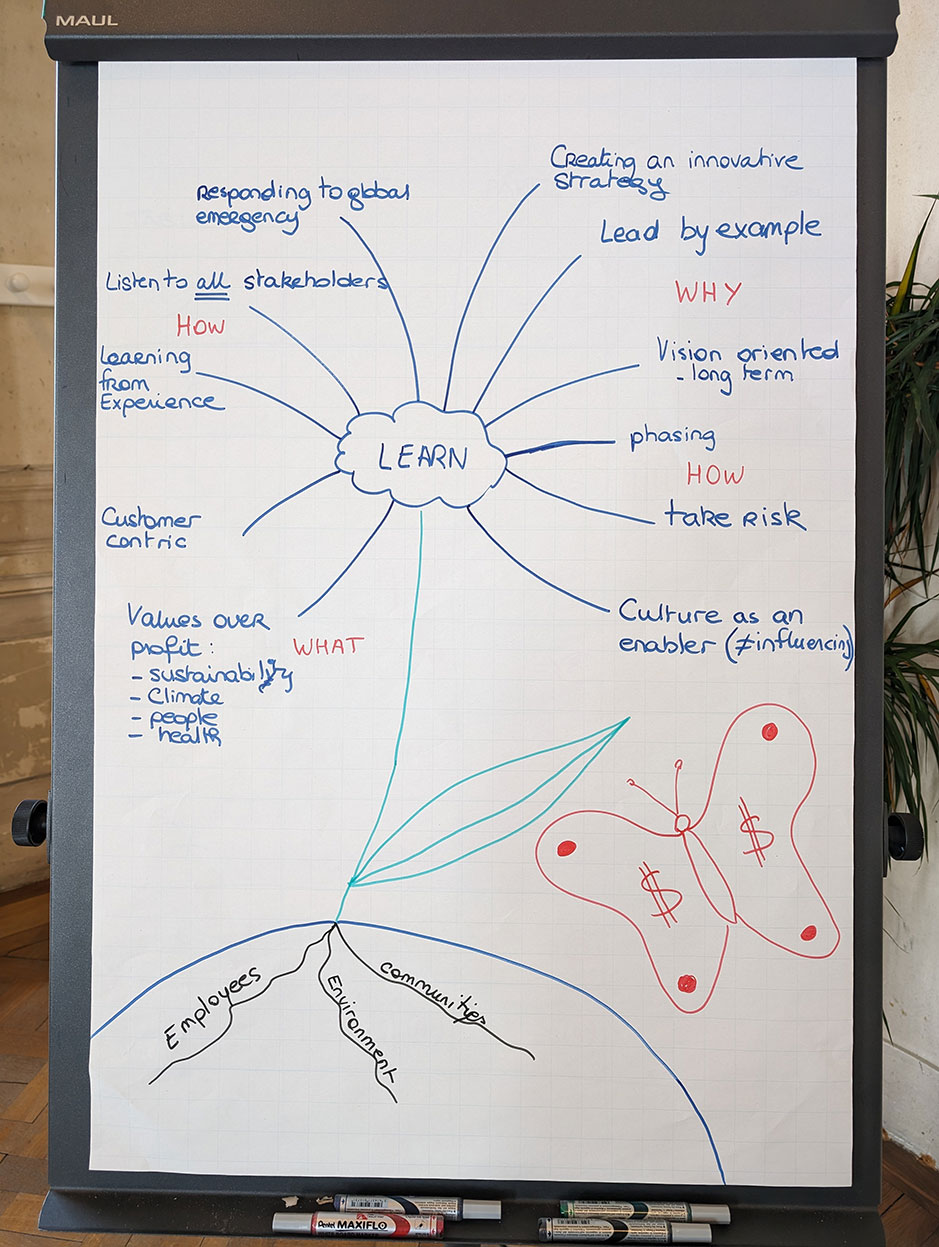 MAUL
Responding to global
emergency
Creating an innovative
strategy
Listen to all stakeholders
Lead by example
HOW
WHY
Learning
from
Experience
Vision oriented
- long term
LEARN
phasing
HOW
Customer
centric
take risk
Values over
profit:
- sustainability
- Climate
- people
- health
WHAT
Culture as an
enabler (≠influencing)
$
$
Employees
Environment
Communities
Pentel MAXIFLO